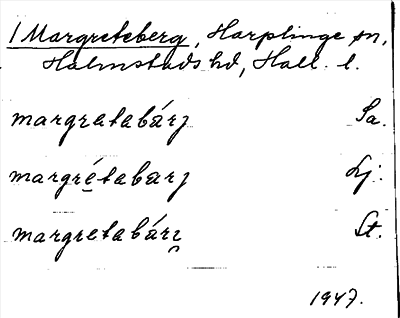 1 Margreteberg, Harplinge sn,
Halmstads hd, Hall. l.
margretabárj Sa.
margrétabarj Lj.
margretabárj St.
1947.